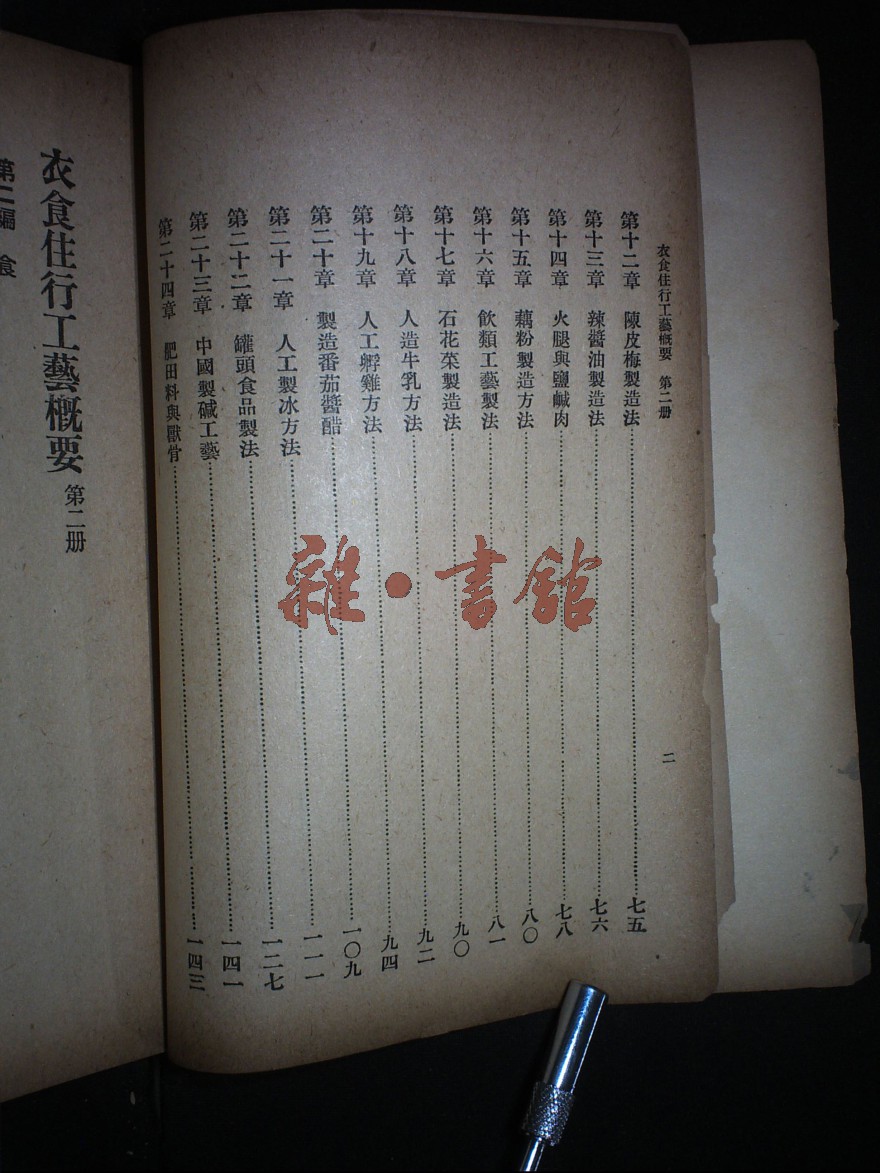 衣食住行工藝概要　第二册
第十二章　陳皮梅製造法……七五
第十三章　辣醬油製造法……七六
第十四章　火腿與鹽鹹肉……七八
第十五章　藕粉製造方法……八〇
第十六章　飲類工藝製法……八一
第十七章　石花菜製造法……九〇
第十八章　人造牛乳方法……九二
第十九章　人工孵雞方法……九四
第二十章　製造番茄醬醋……一〇九
第二十一章　人工製冰方法……一一一
第二十二章　罐頭食品製法……一二七
第二十三章　中國製碱工藝……一四一
第二十四章　肥田料與獸骨……一四三
二
衣食住行工藝概要　第二册
第二編　食
雜·書館